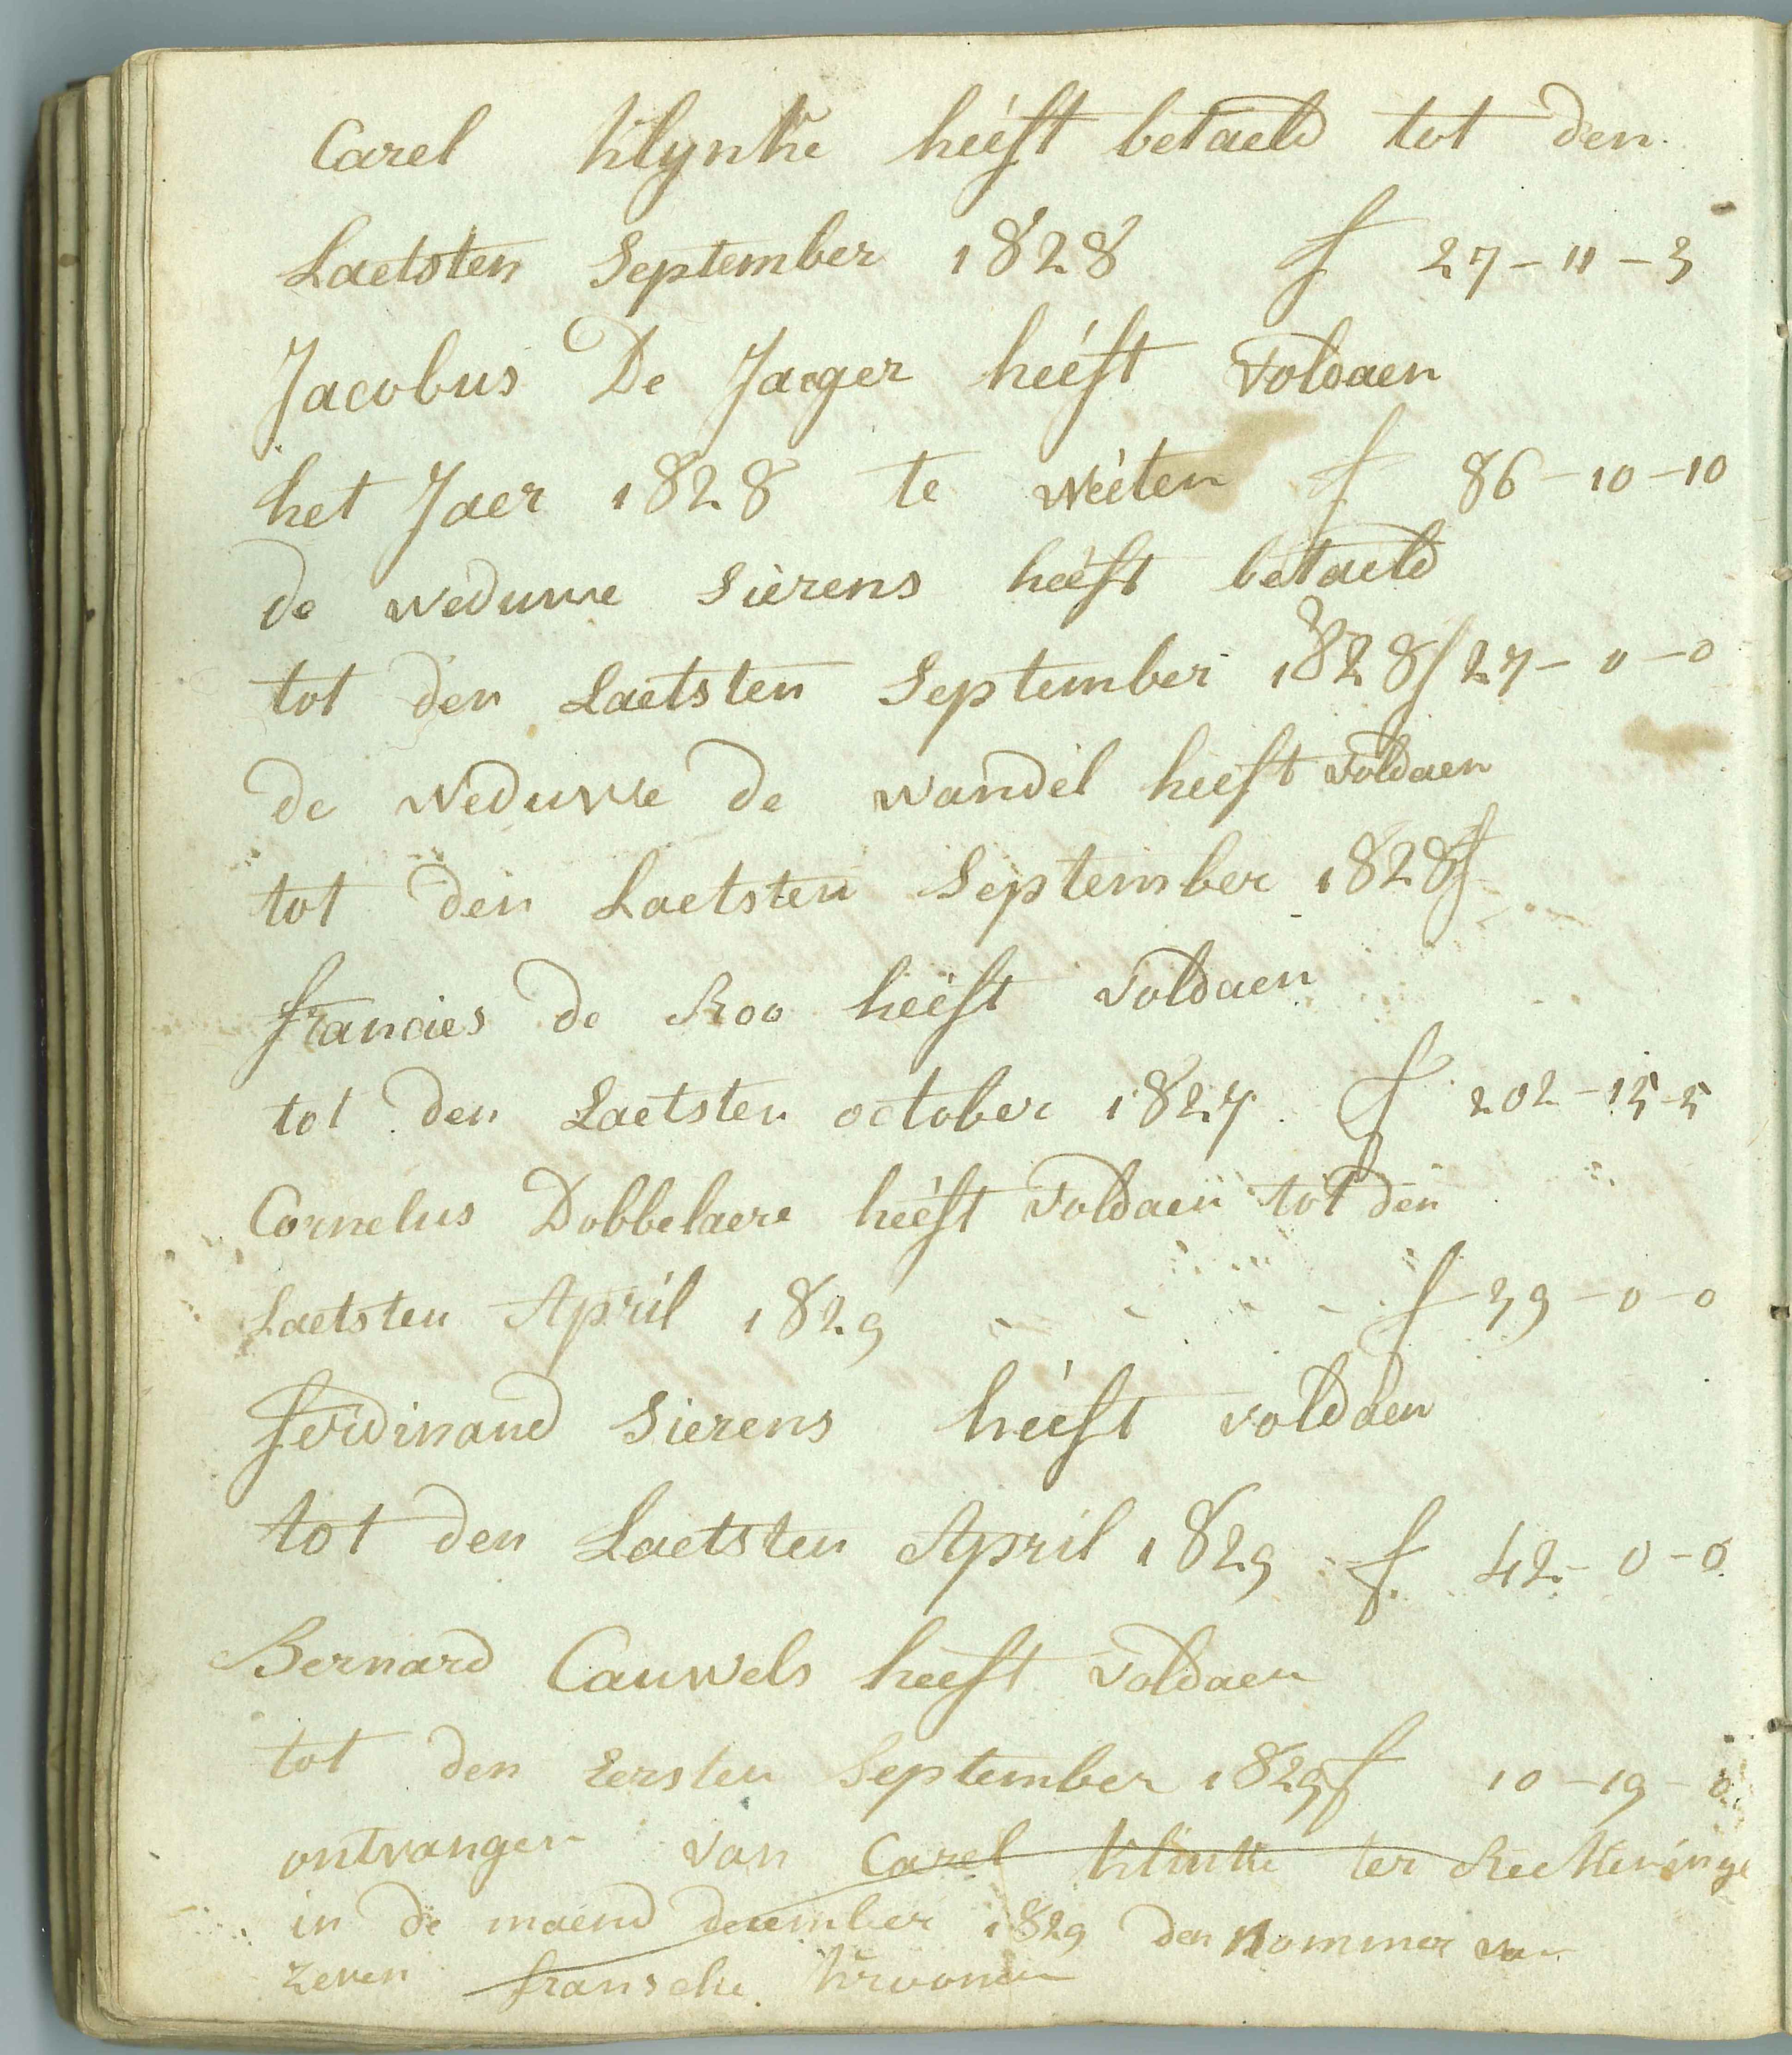 Carel Klynke heeft betaeld tot den
Laetsten September 1828 f 27-11-3
Jacobus De Jaeger heeft voldaen
het Jaer 1828 te weeten f 86-10-10
de weduwe Sierens heeft betaeld
tot den Laetsten September 1828 f 27-0-0
de weduwe de wandel heeft voldaen
tot den Laetsten September 1828 f
francies de Roo heeft voldaen
tot den Laetsten october 1827 f 202-15-5
Cornelus Dobbelaere heeft voldaen tot den
Laetsten April 1829 f 39-0-0
ferdinand Sierens heeft voldaen
tot den Laetsten April 1829 f 42-0-0
Bernard Cauwels heeft voldaen
tot den eersten September 1829 f 10-19-0
ontvangen van Carel Klinke ter Reekeninge
in de maend december 1829 den nommer van
zeven fransche kroonen